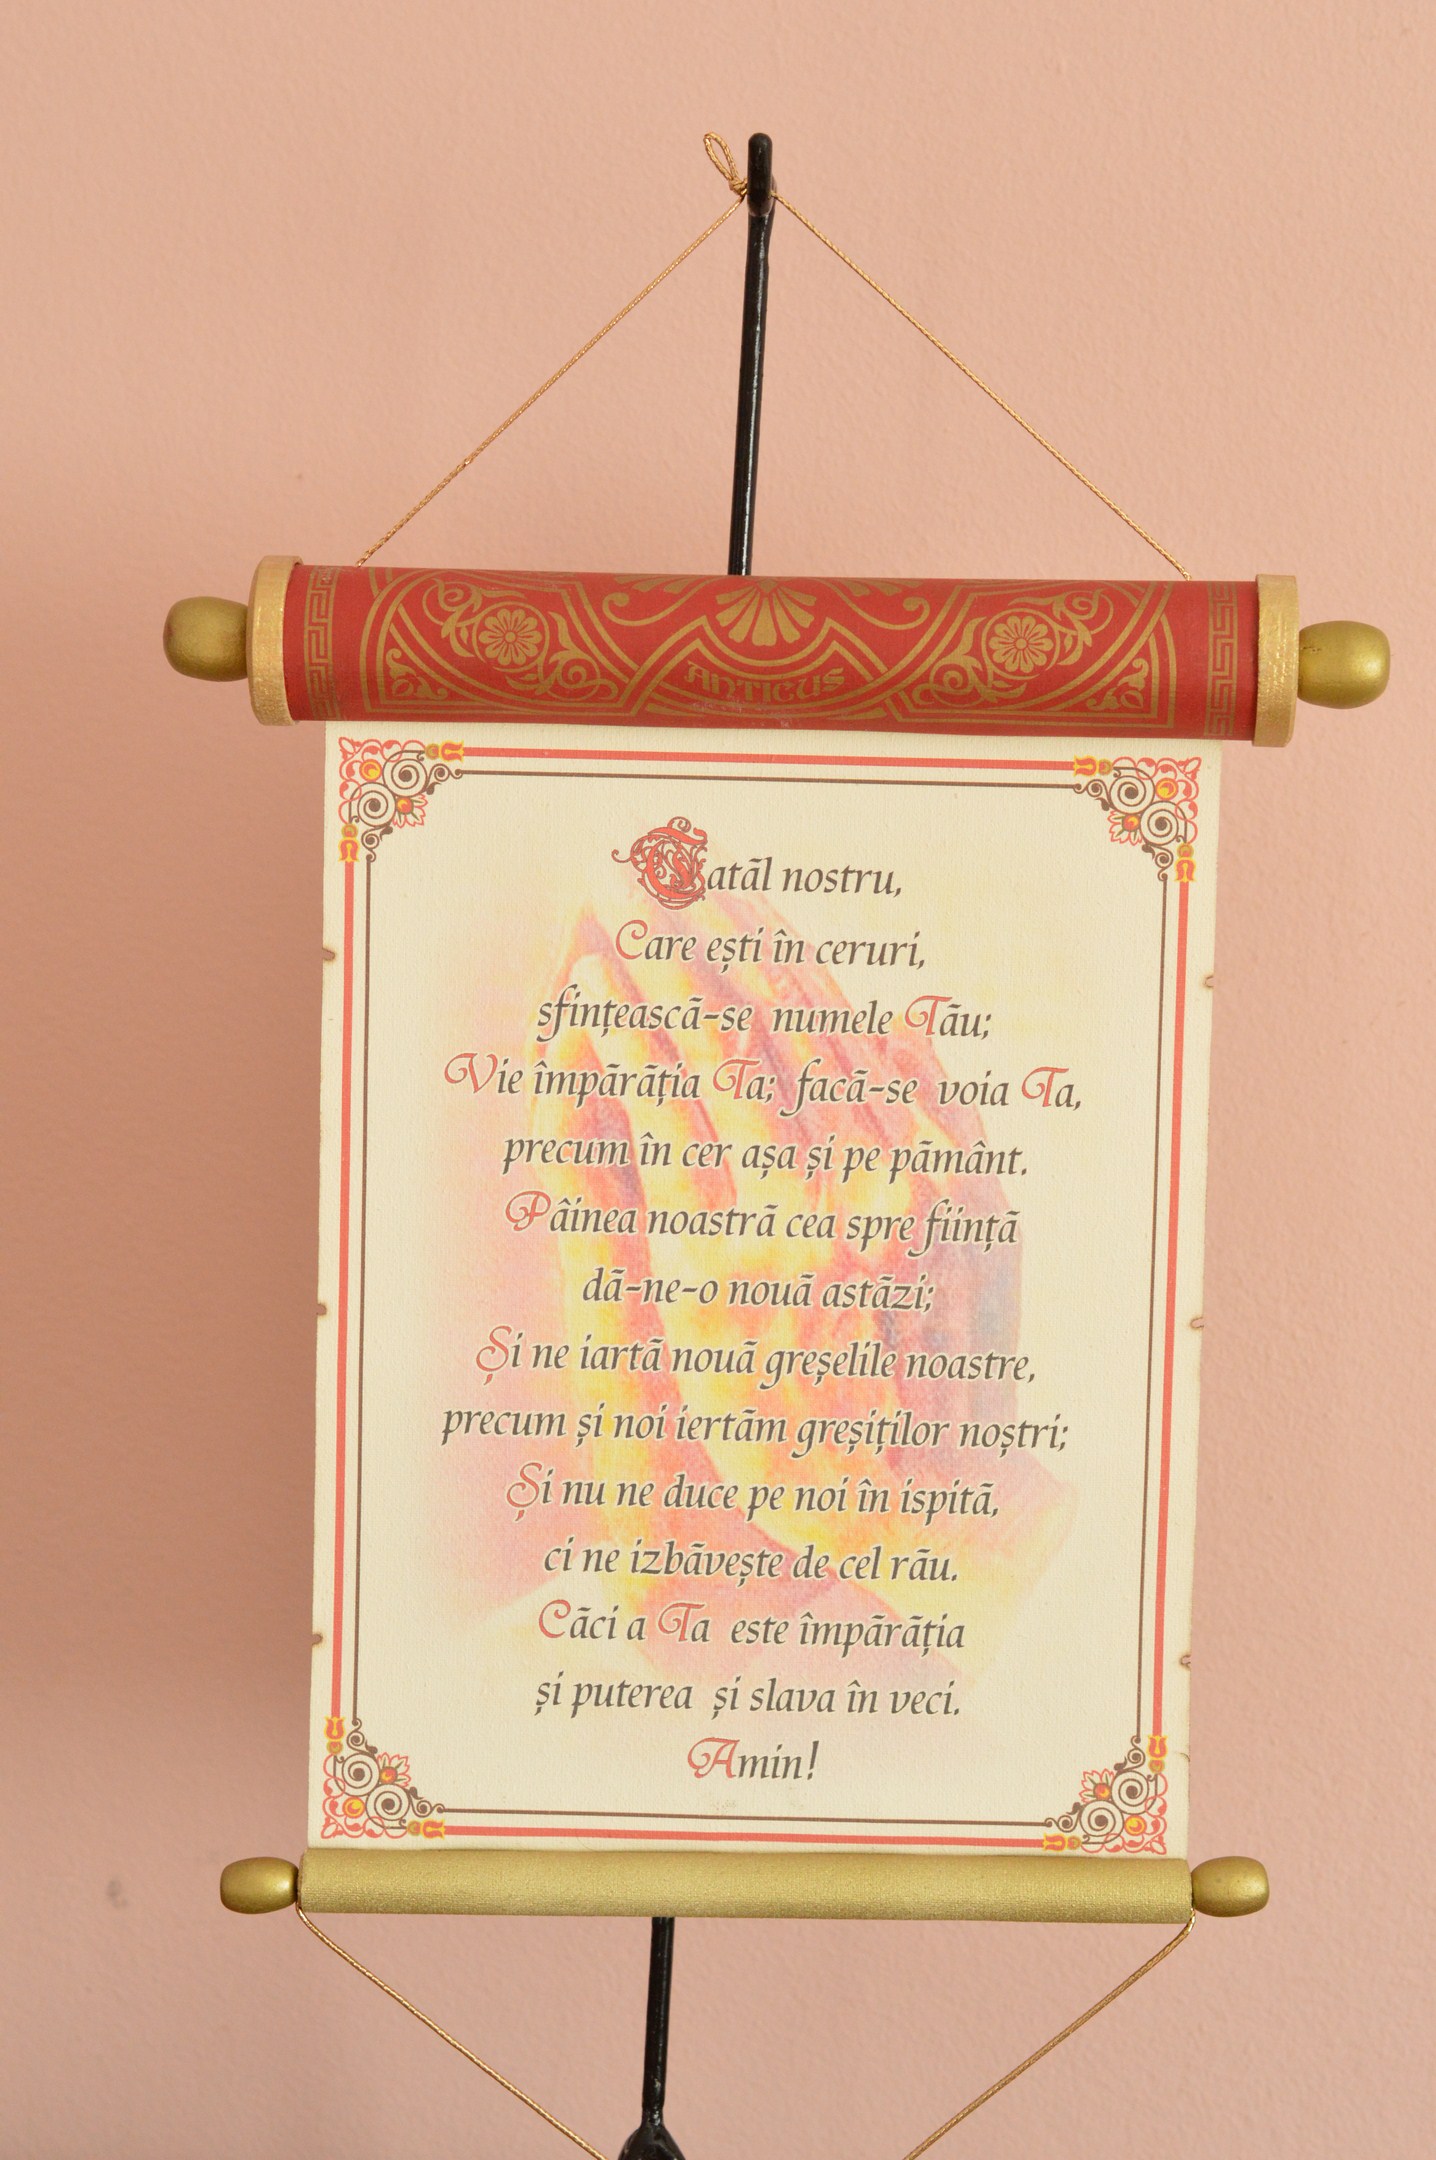 ANTICUS
Tatãl nostru,
Care ești în ceruri,
sfințeascã-se numele Tãu;
Vie împãrãția Ta; facã-se voia Ta,
precum în cer așa și pe pãmânt.
Pâinea noastrã cea spre ființã
dã-ne-o nouã astãzi;
Și ne iartã nouã greșelile noastre,
precum și noi iertãm greșiților noștri;
Și nu ne duce pe noi în ispitã,
ci ne izbãvește de cel rãu.
Cãci a Ta este împãrãția
și puterea și slava în veci.
Amin!